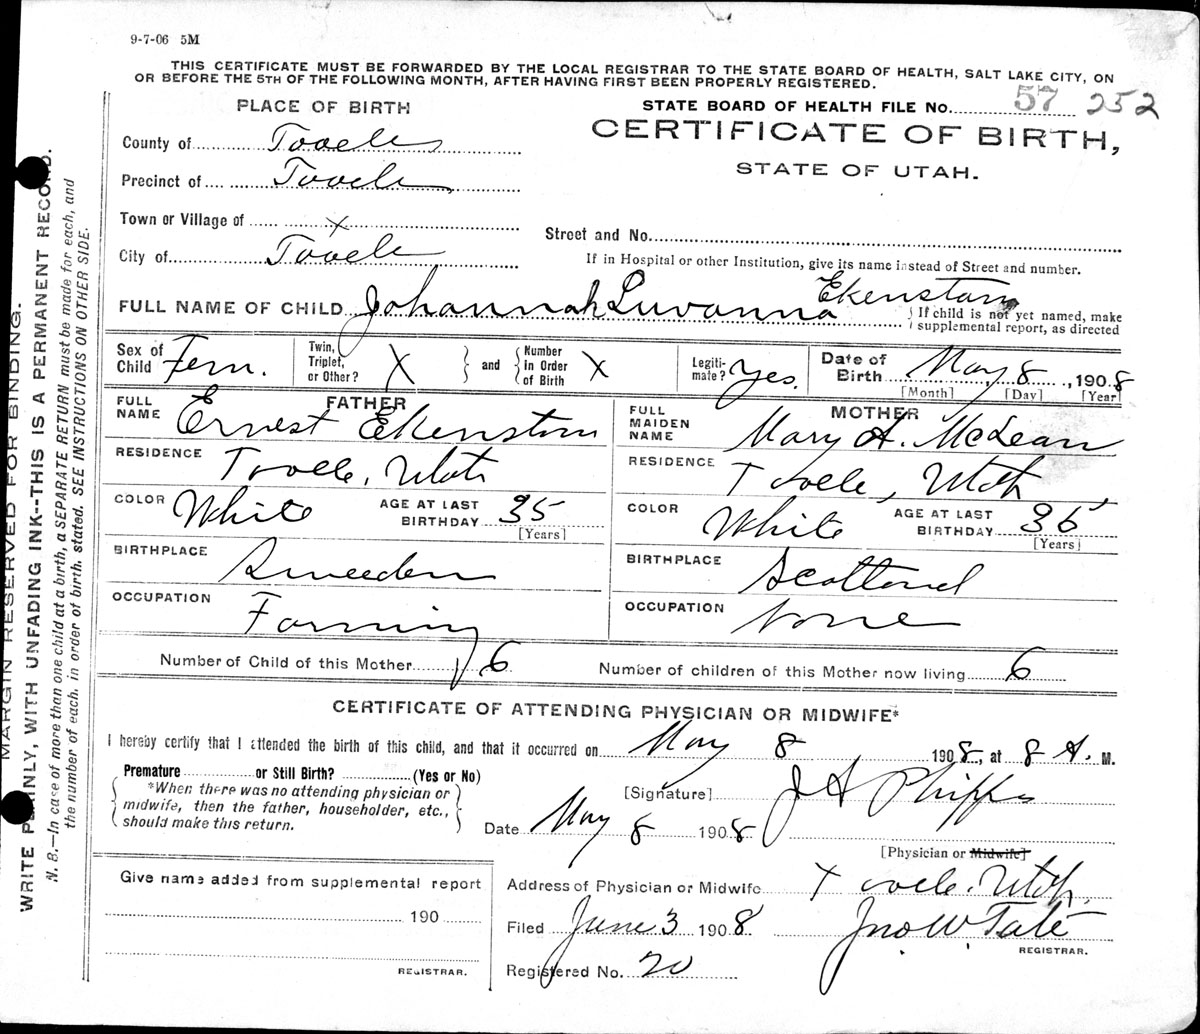 9-7-06 5M
THIS CERTIFICATE MUST BE FORWARDED BY THE LOCAL REGISTRAR TO THE STATE BOARD OF HEALTH, SALT LAKE CITY, ON
OR BEFORE THE 5TH OF THE FOLLOWING MONTH, AFTER HAVING FIRST BEEN PROPERLY REGISTERED.
PLACE OF BIRTH
STATE BOARD OF HEALTH FILE No. 57 252
CERTIFICATE OF BIRTH,
STATE OF UTAH.
County of Tooele
Precinct of Tooele
Town or Village of X
City of Tooele
Street and No.
If in Hospital or other Institution, give its name instead of Street and number.
FULL NAME OF CHILD Johannah Luvanna Ekenstam
{If child is not yet named, make
supplemental report, as directed
Sex of Child Fem.
Twin, Triplet, or Other? X
and
Number In Order of Birth X
Legiti-mate? Yes.
Date of Birth May 8, 1908
[Month] [Day] [Year]
FATHER
FULL NAME Ernest Ekenstam
RESIDENCE Tooele, Utah
COLOR White
AGE AT LAST BIRTHDAY 35
[Years]
BIRTHPLACE Sweeden
OCCUPATION Farming
MOTHER
FULL MAIDEN NAME Mary A. McLean
RESIDENCE Tooele, Utah
COLOR White
AGE AT LAST BIRTHDAY 36
[Years]
BIRTHPLACE Scotland
OCCUPATION None
Number of Child of this Mother 6
Number of children of this Mother now living 6
CERTIFICATE OF ATTENDING PHYSICIAN OR MIDWIFE*
I hereby certify that I attended the birth of this child, and that it occurred on May 8 1908, at 8 A. M.
Premature or Still Birth? (Yes or No)
{*When there was no attending physician or
midwife, then the father, householder, etc.,
should make this return.}
[Signature] J A Phipps
Date May 8 1908
[Physician or Midwife]
Give name added from supplemental report
190
REGISTRAR.
Address of Physician or Midwife Tooele, Utah.
Filed June 3 1908
Jno. W. Tate
REGISTRAR.
Registered No. 20
MARGIN RESERVED FOR BINDING.
WRITE PLAINLY, WITH UNFADING INK--THIS IS A PERMANENT RECORD.
N. B.—In case of more than one child at a birth, a SEPARATE RETURN must be made for each, and
the number of each, in order of birth, stated. SEE INSTRUCTIONS ON OTHER SIDE.